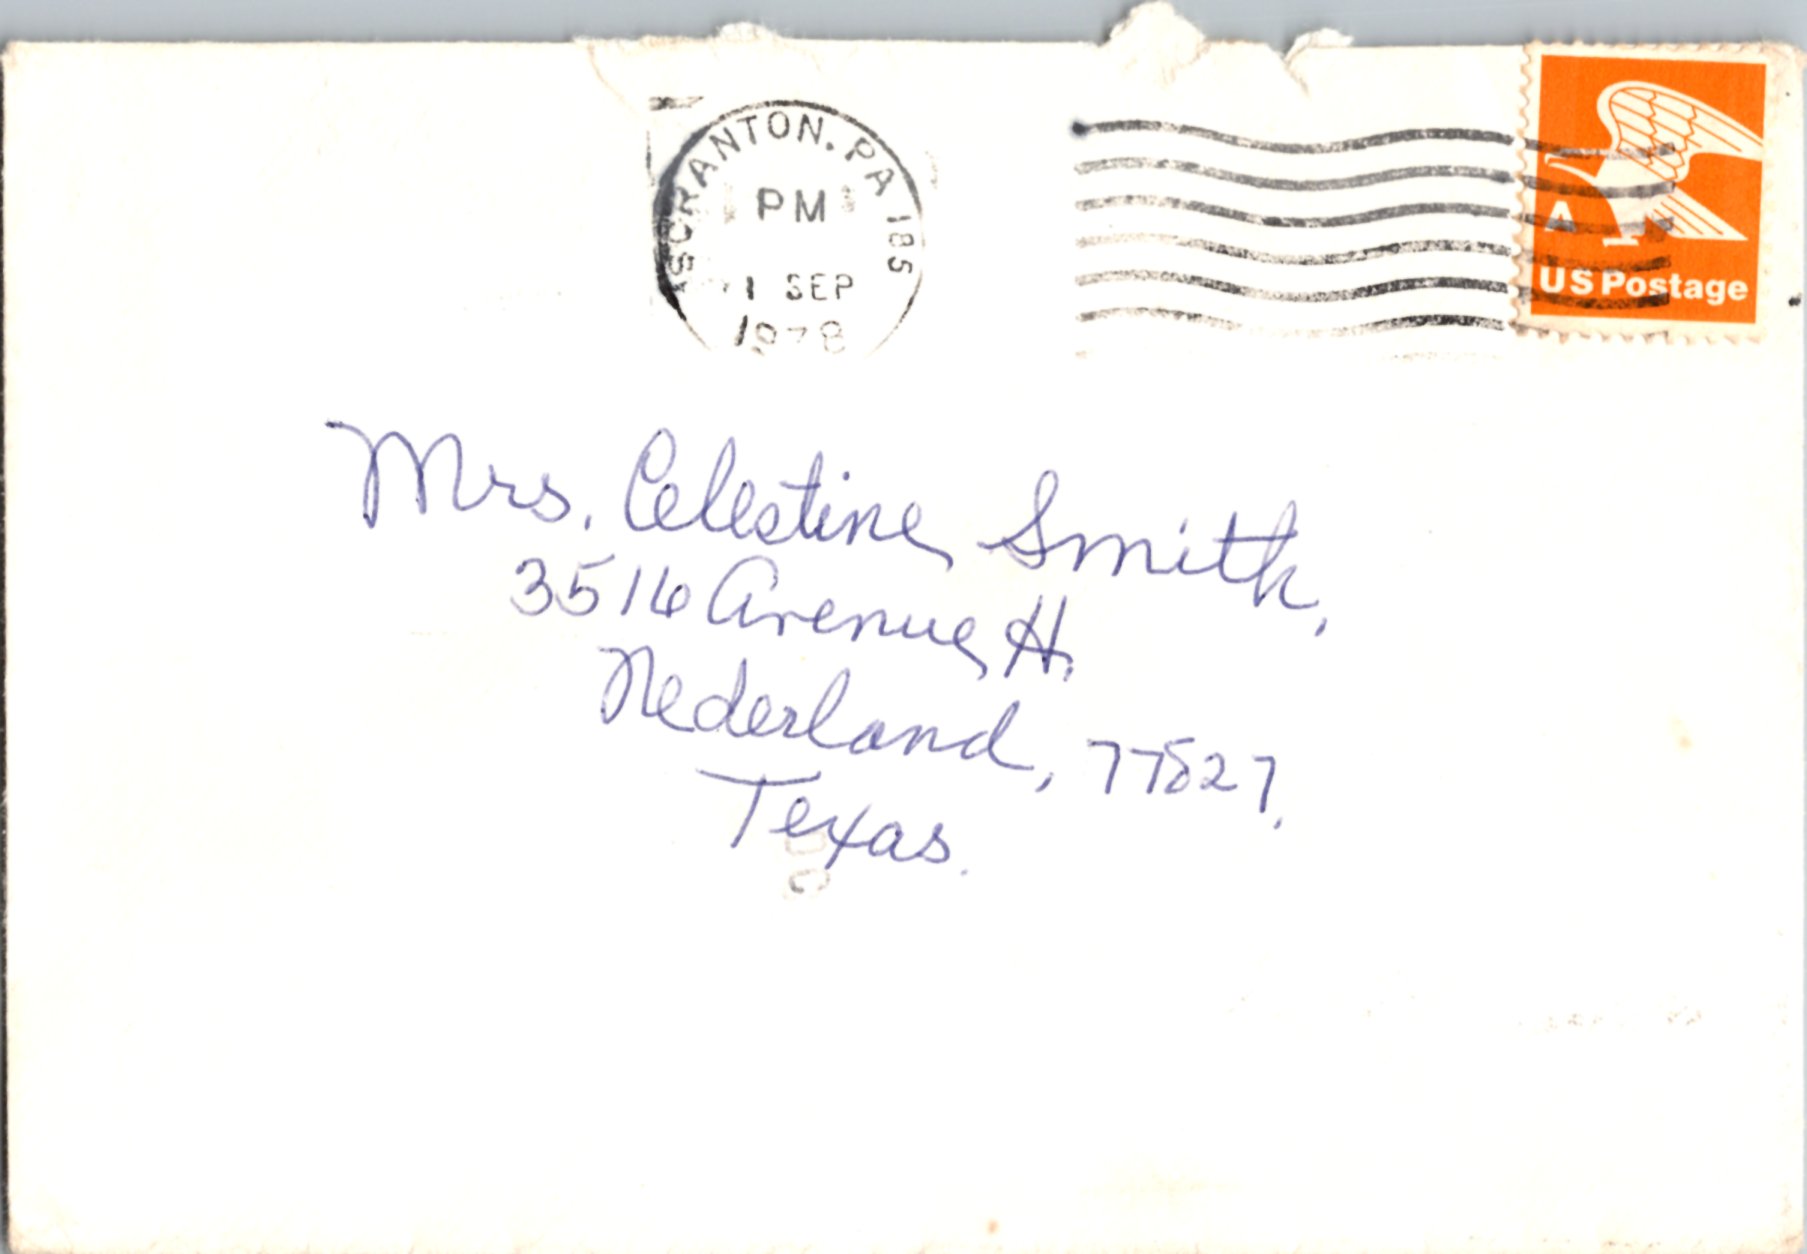 SCRANTON, PA 185
PM
1 SEP
1978
A
US Postage
Mrs. Celestine Smith,
3516 Avenue H.
Nederland, 77627.
Texas.